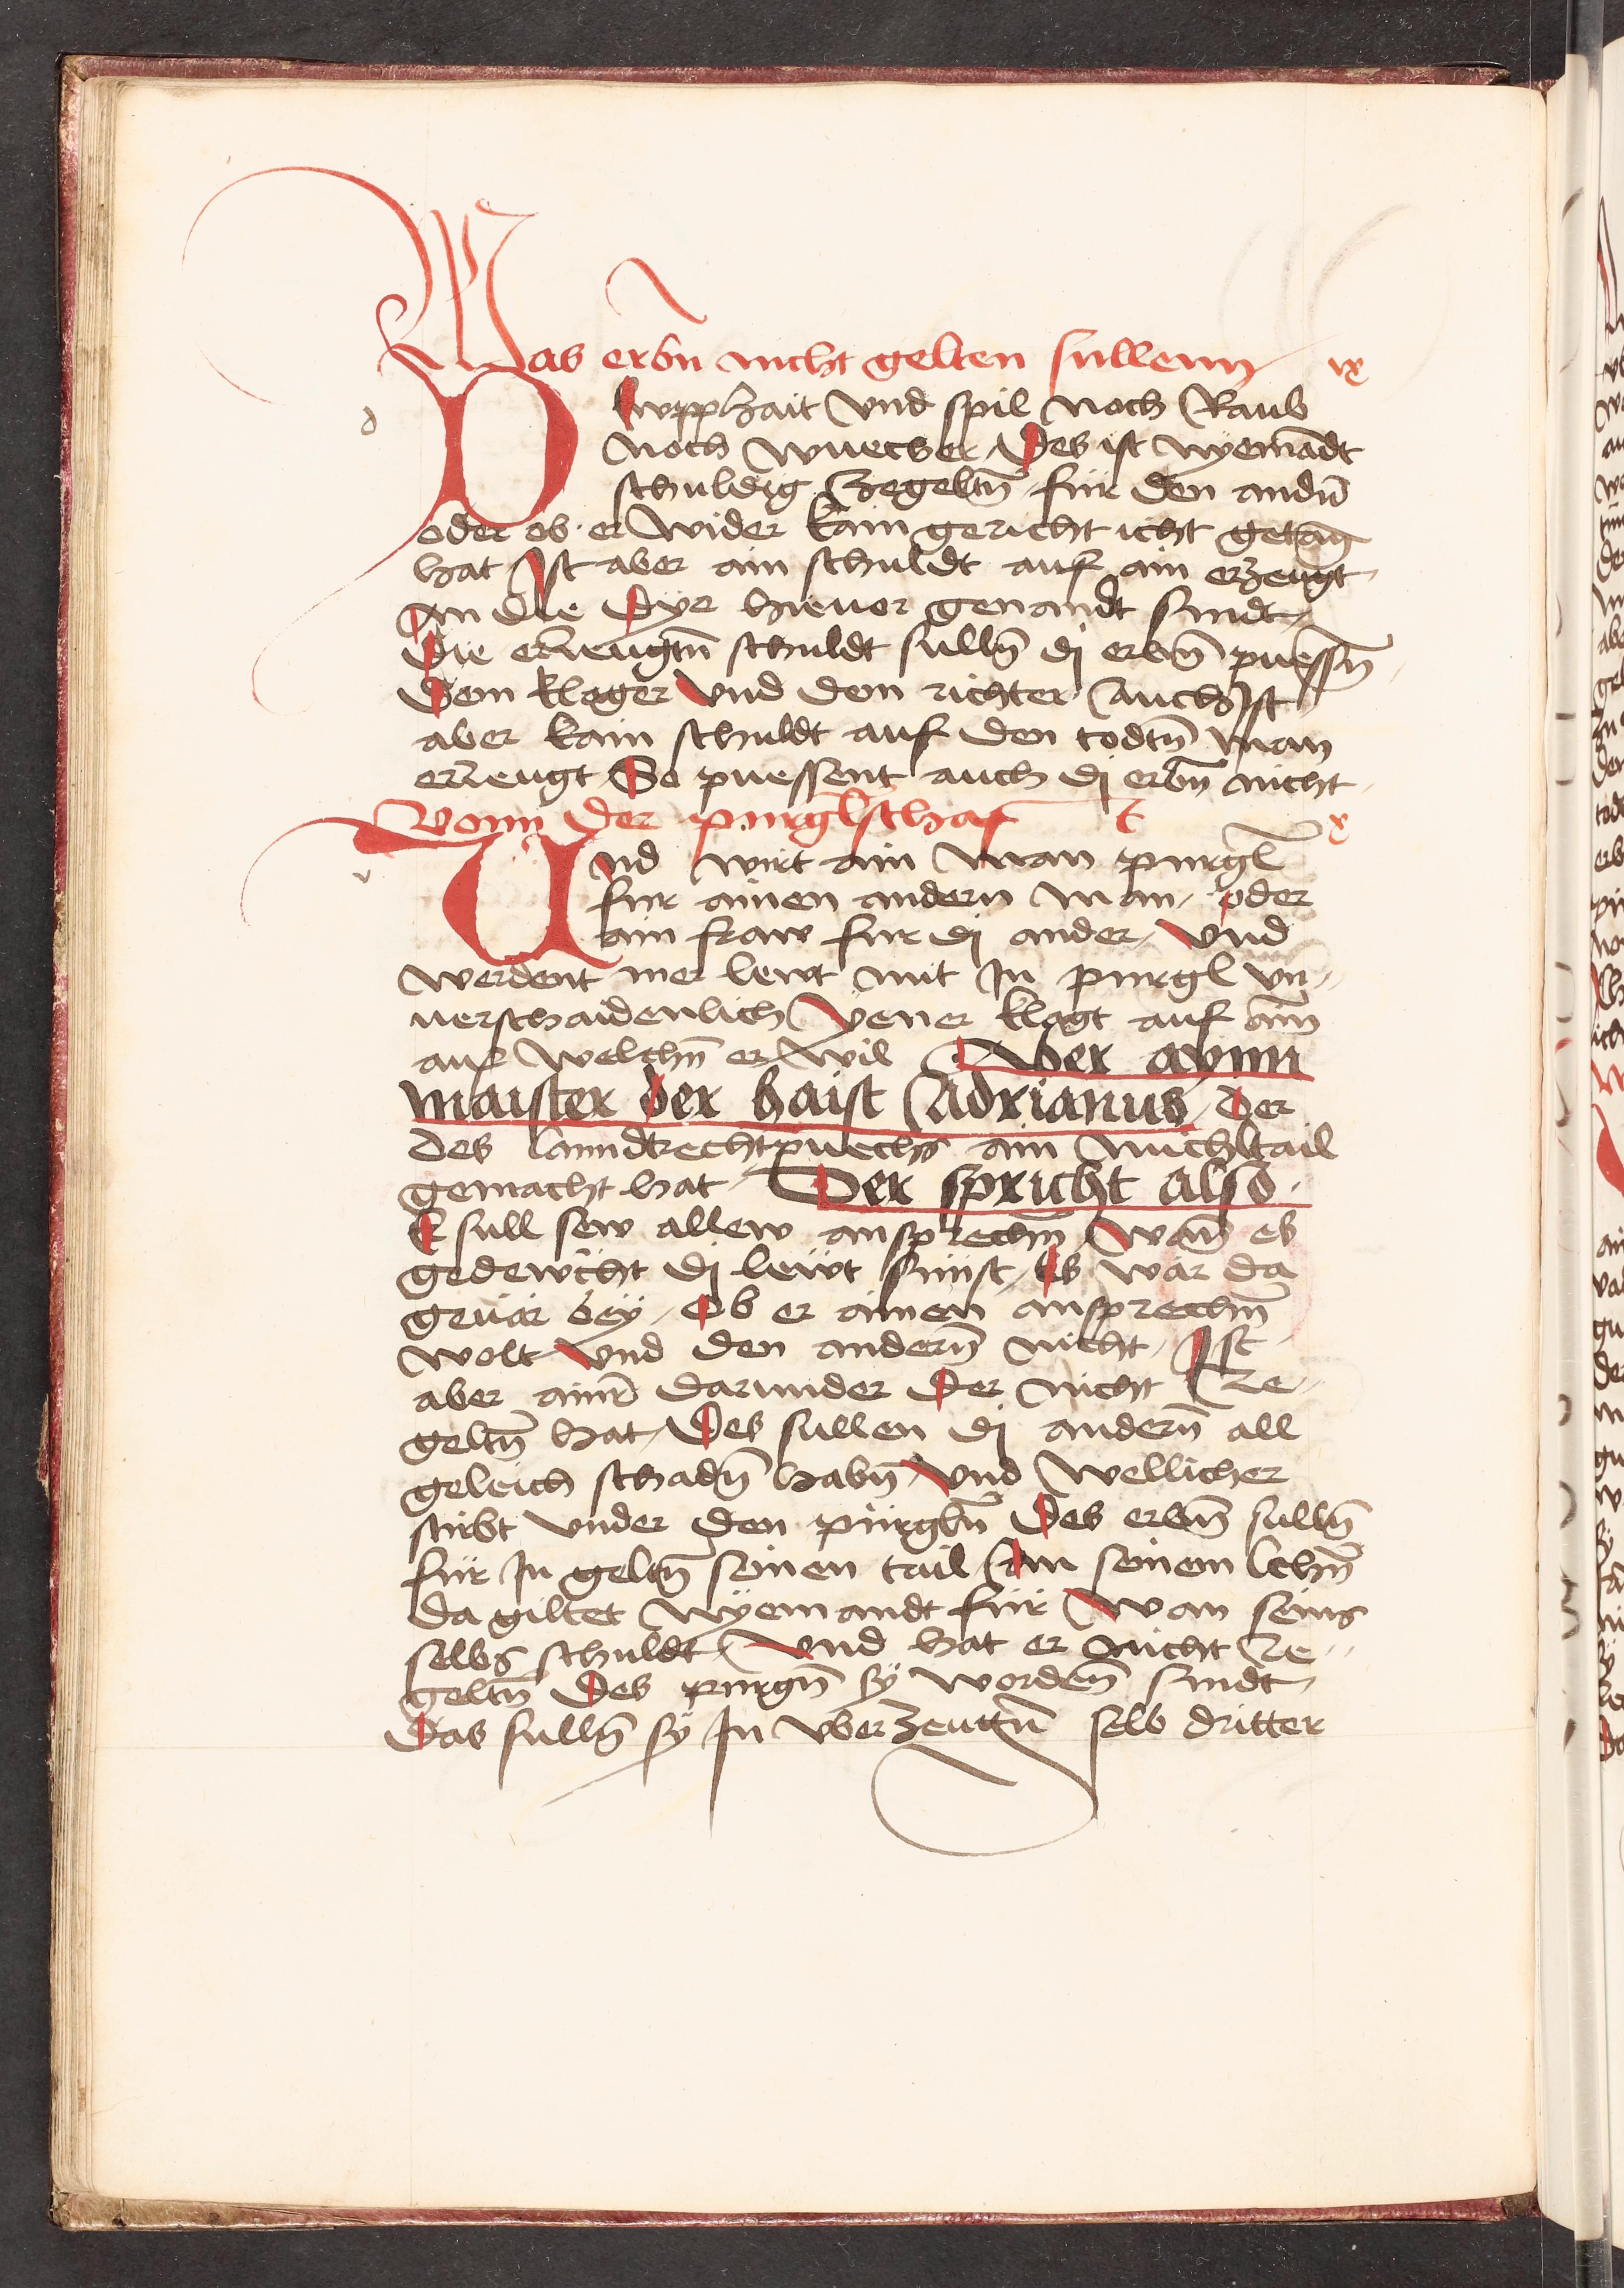 Was erbn̄ nicht gelten sullenn ix
Dwpphait vnd spil noch Raub
noch wuecher Des ist nyemādt
schuldig zegeltn̄ für den andn̄
oder ob er wider kain gericht icht getan̄
hat Ist aber ain schuldt auf ain erzeugt
An die Dyr hieuor genandt sindt
Die erczeugtn̄ schuldt sulln̄ dj erbn̄ puessn̄
Dem klager vnd den richter auch Ist
aber kain schuldt auf den todtn̄ man
erczeugt So puessent auch dj erbn̄ nicht
Vonn der purglschaft x
Vnd wirt ain man purgl
fur ainen andern man oder
ain fraw fur dj ander vnd
werdent mer lewt mit In purgl vn
uerschaidenlich Yener klagt auf ain̄
auf welchn̄ er wil Aber aynn
maister der haist Adrianus der
des lanndtrechtpuechs ain michltail
gemacht hat Der spricht also
Er sull sew allew ansprechn̄ wan̄ es
gedewcht dj lewt sunst Es wär da
geuär bey Ob er ainen ansprechn̄
wolt vnd den andern̄ nicht Ist
aber ainr̄ darunder Der nicht cze
geltn̄ hat Des sullen dj andern̄ all
geleich schadn̄ habn̄ vnd wellicher
stirbt vnder den pürgln̄ Des erbn̄ sulln̄
für In geltn̄ seinen tail Am seinem lehn̄
da giltet nyemandt für wan seins
selbs schuldt vnd hat er nicht cze
geltn̄ Des purgn̄ sy wordenn̄ sindt
Das sulln̄ sy In vberzeugtn̄ selb dritter